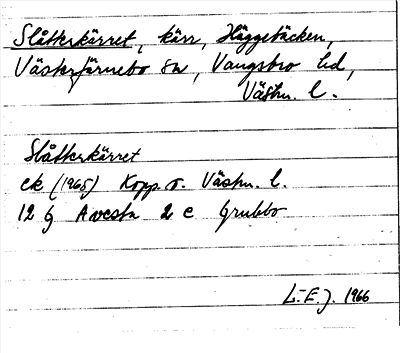 Slåtterkärret, kärr, Häggebäcken,
Västerfärnebo sn, Vangsbro hd,
Västm. l.
Slåtterkärret
ek (1965) Kopp. o. Västm. l.
12 G Avesta 2 c Grubbo
L-E. J. 1966